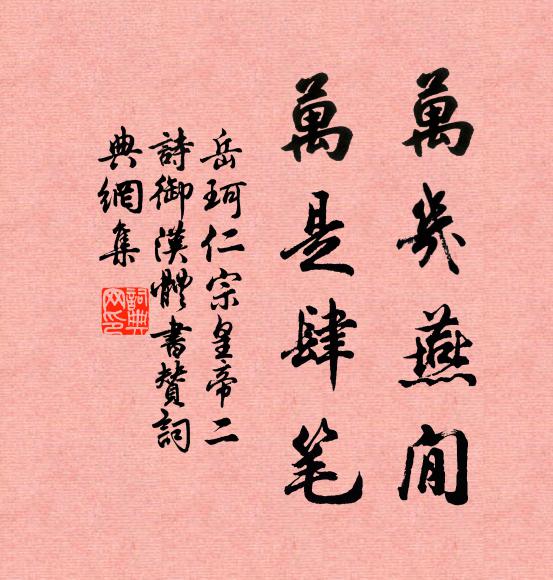 萬幾燕閒
萬是肆笔
岳珂仁宗皇帝二
詩御漢體書賛詞
典網集
詞典
网印